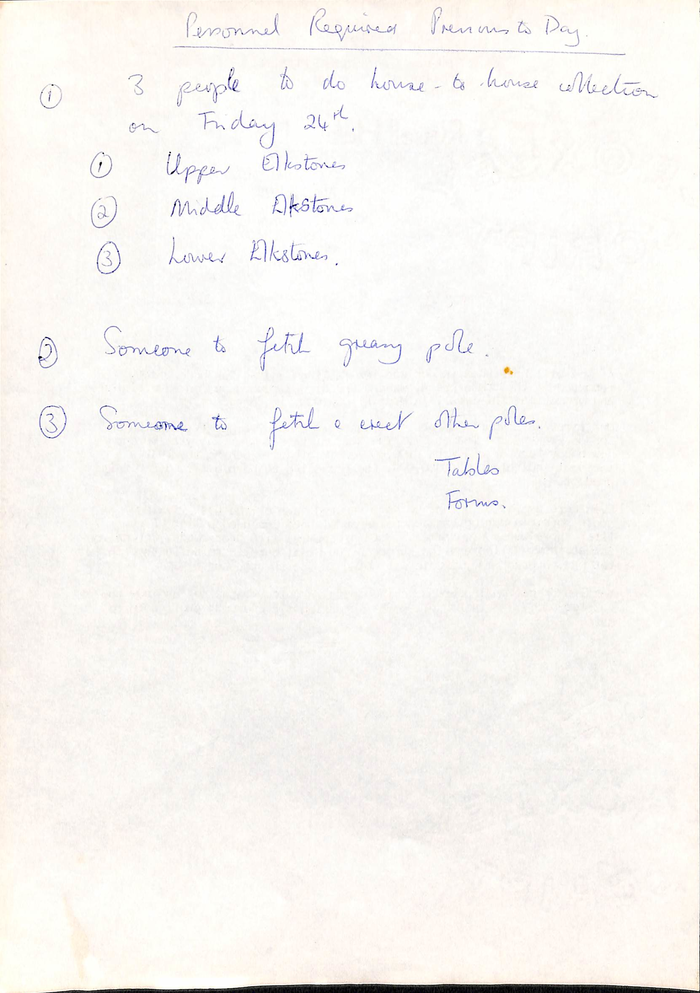 Personnel Required Previous to Day.
① 3 people to do house-to-house collection
on Friday 24th.
① Upper Elkstones
② Middle Elkstones
③ Lower Elkstones.
② Someone to fetch greasy pole.
③ Someone to fetch & erect other poles.
Tables
Forms.